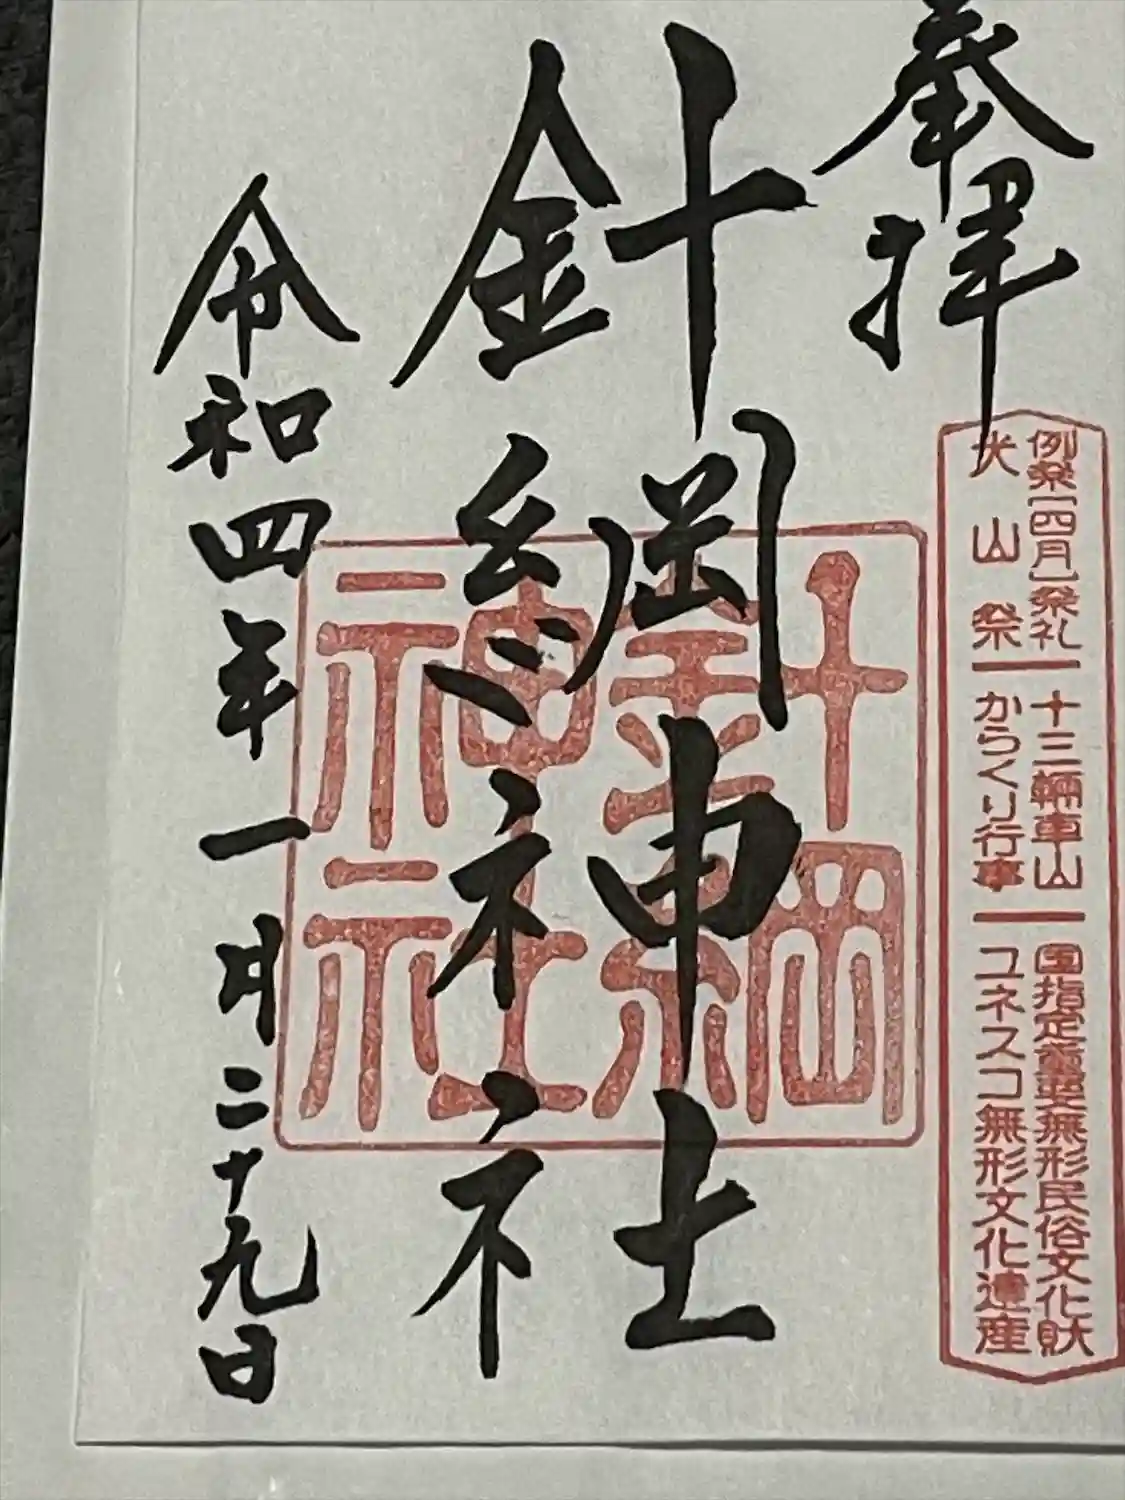 奉拝
例祭[四月]祭礼 十三輛車山 国指定重要無形民俗文化財
犬山祭 からくり行事 ユネスコ無形文化遺産
針綱神社
針綱神社
令和四年一月二十九日